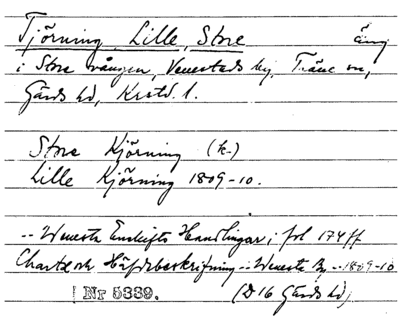 Tjörning, Lille, Store äng
i Store vången, Venestads by, Träne sn,
Gärds hd, Krstd. l.
Store Kjörning (k.)
Lille Kjörning 1809-10.
-- Wenesta Enskifts Handlingar, fol 174 ff
Charta och Häfdebeskrifning -- Wenesta By -- 1809-10
Nr 5339. (D 16 Gärds hd)